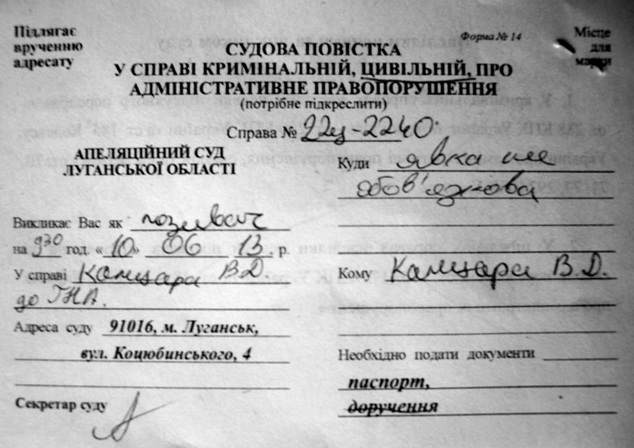 Підлягає
врученню
адресату
Форма № 14
Місце
для
марки
СУДОВА ПОВІСТКА
У СПРАВІ КРИМІНАЛЬНІЙ, ЦИВІЛЬНІЙ, ПРО
АДМІНІСТРАТИВНЕ ПРАВОПОРУШЕННЯ
(потрібне підкреслити)
Справа № 22ц-2240
АПЕЛЯЦІЙНИЙ СУД
ЛУГАНСЬКОЇ ОБЛАСТІ
Куди явка не
обов'язкова
Викликає Вас як позивач
на 9 30 год. «10» 06 13 р.
У справі Камцара В.Д.
до ГНА.
Кому Камцара В.Д.
Адреса суду 91016, м. Луганськ,
вул. Коцюбинського, 4
Необхідно подати документи
паспорт,
доручення
Секретар суду